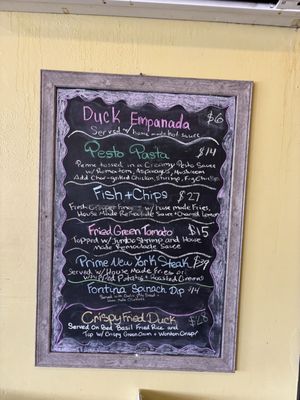 Duck Empanada $6
Served w/ home made hot sauce
Pesto Pasta $14
Penne tossed in a Creamy Pesto Sauce
w/ Tomatoes, Asparagus, Mushroom
Add Char-grilled Chicken, Shrimp,
Fish + Chips $27
Fresh Grouper Fried w/ house made Fries,
House Made Remoulade Sauce + Charred Lemon
Fried Green Tomato $15
Topped w/ Jumbo Shrimp and House
made Remoulade Sauce
Prime New York Steak $39
Served w/ House Made Fries or
Fried Potatoes + Roasted Greens
Fontina Spinach Dip $14
Served with
Crispy Fried Duck $28
Served On Red Basil Fried Rice and
Top w/ Crispy Green Onion + Wonton Crisps